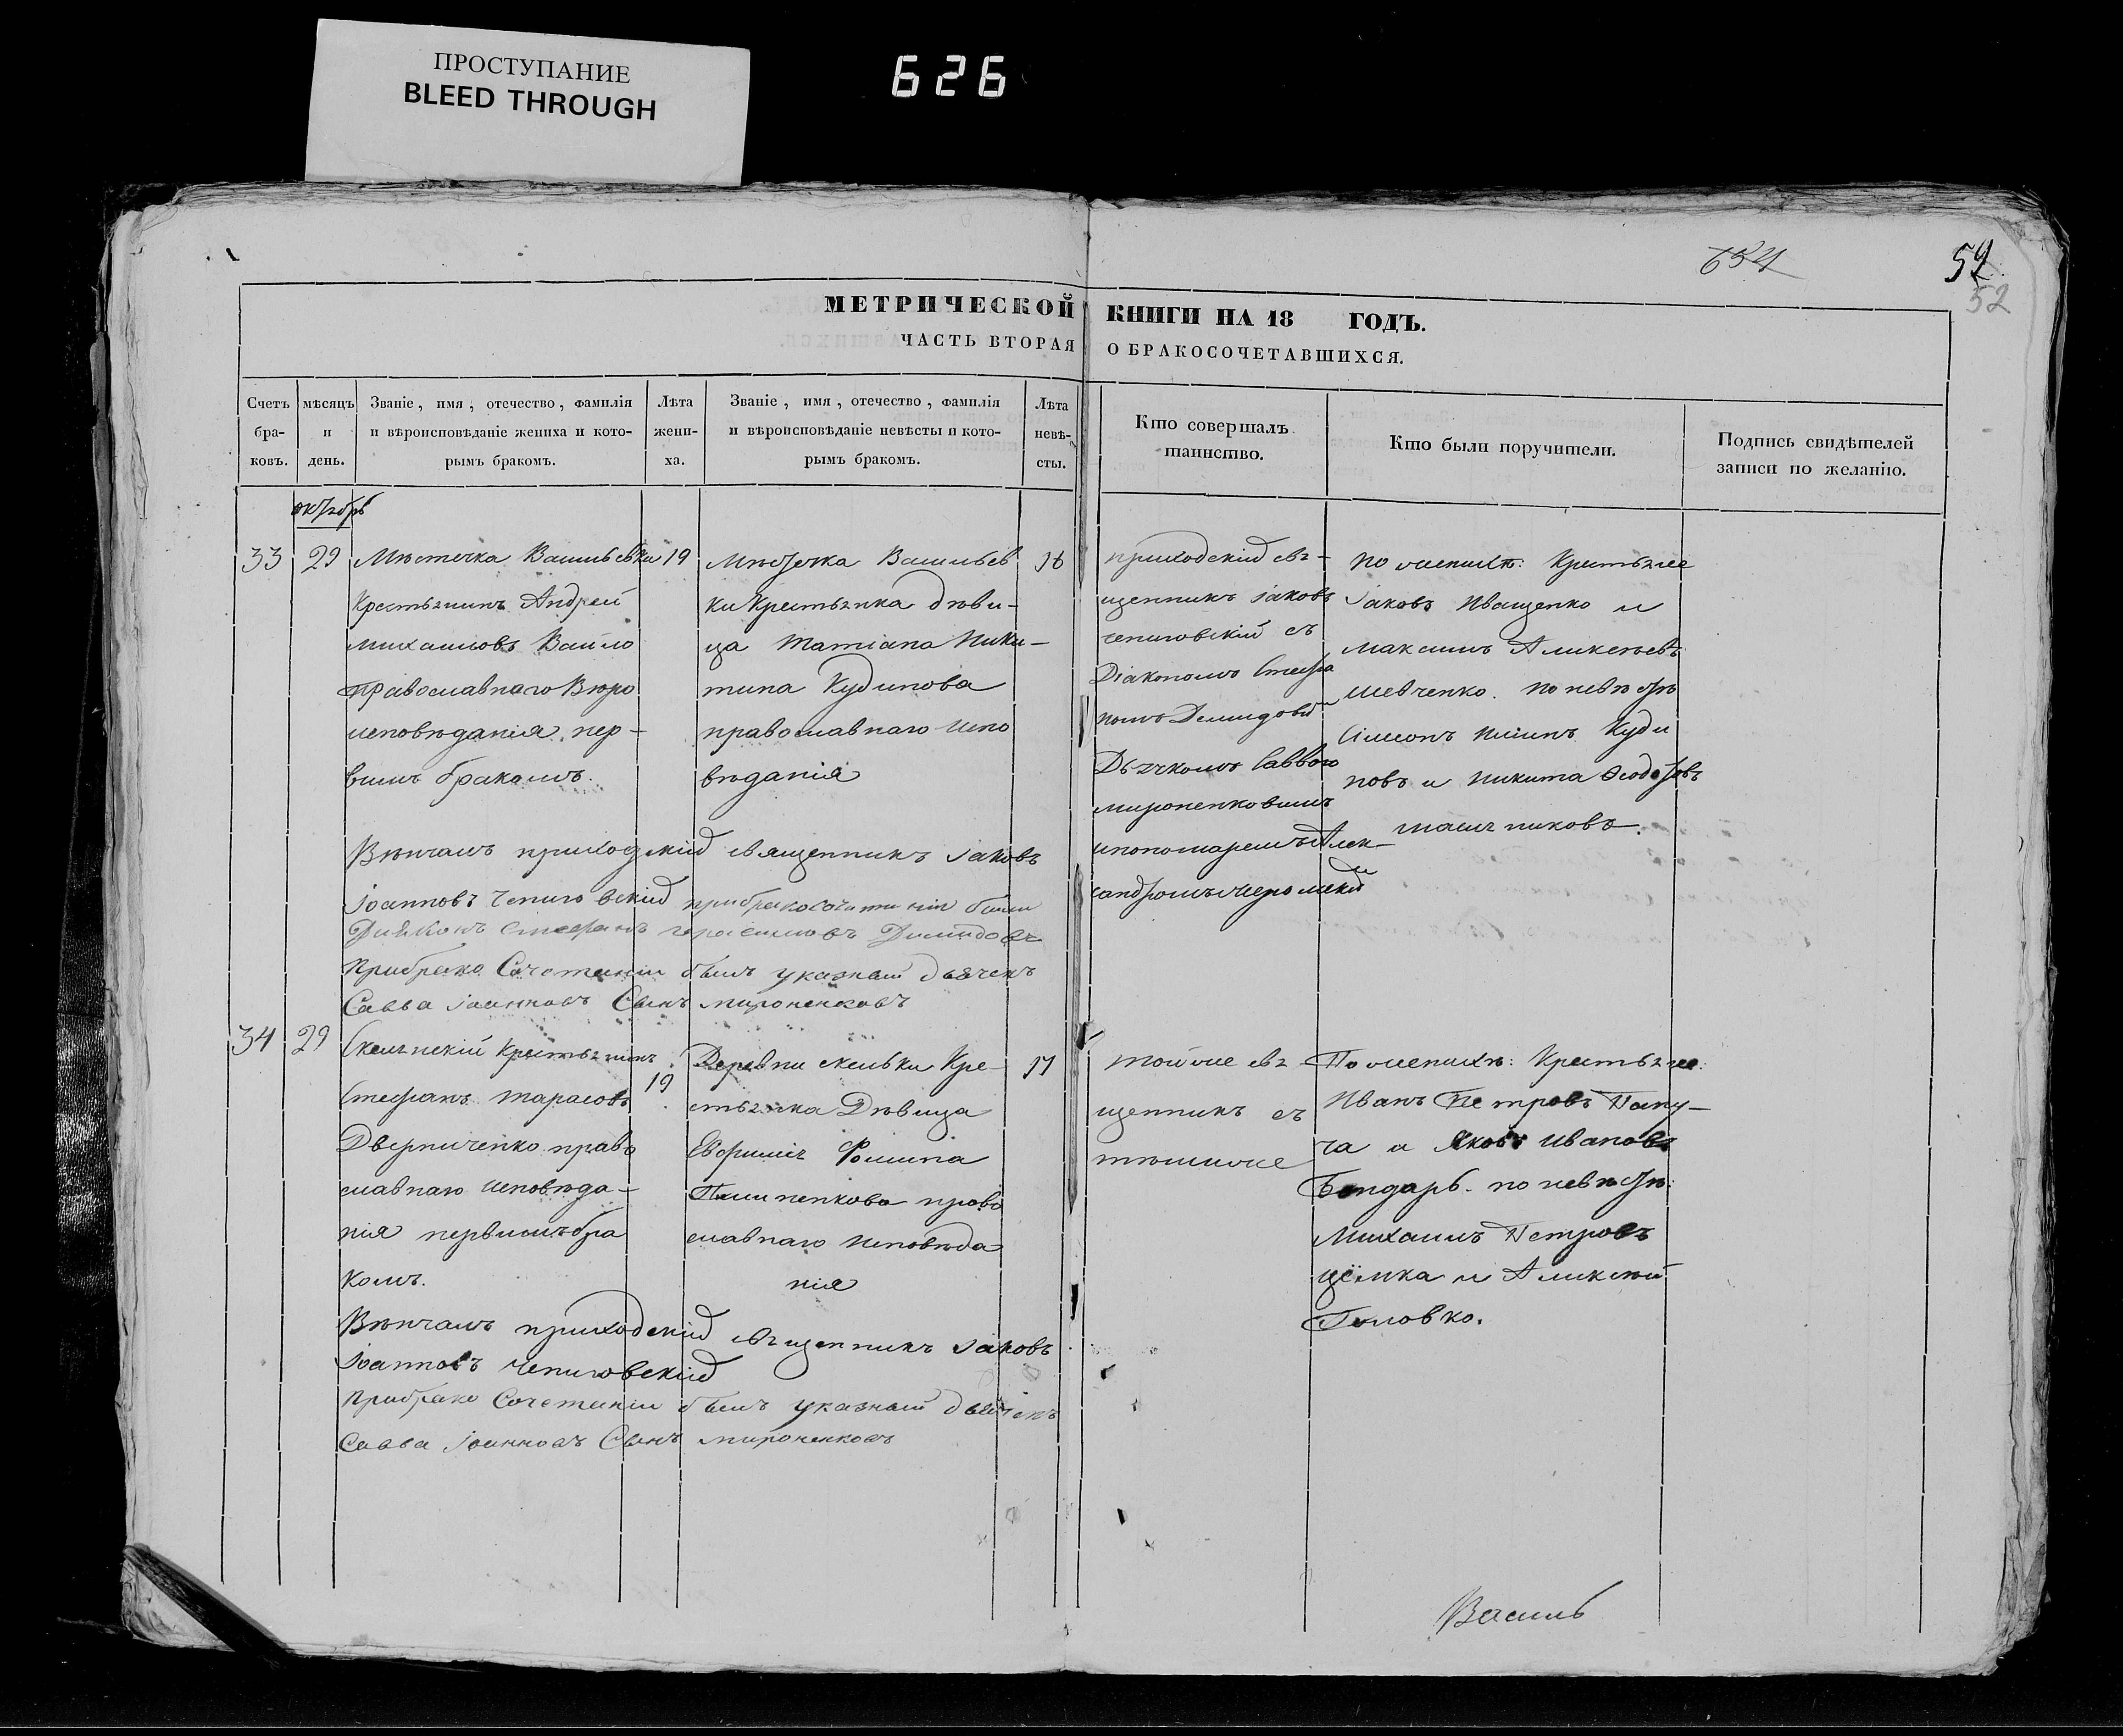 ПРОСТУПАНИЕ
BLEED THROUGH
626
654
59
52
МЕТРИЧЕСКОЙ КНИГИ НА 18 ГОДЪ.
ЧАСТЬ ВТОРАЯ О БРАКОСОЧЕТАВШИХСЯ.
Счетъ бра-ковъ.
мѣсяцъ и день.
Званіе, имя, отечество, фамилія
и вѣроисповѣданіе жениха и кото-
рымъ бракомъ.
Лѣта жени-ха.
Званіе, имя, отечество, фамилія
и вѣроисповѣданіе невѣсты и кото-
рымъ бракомъ.
Лѣта невѣ-сты.
Кто совершалъ
таинство.
Кто были поручители.
Подпись свидѣтелей
записи по желанію.
октябрь
33 29
Мѣстечка Васильевки
Крестьянинъ Андрей
Михаиловъ Вайло
православнаго Вѣро
исповѣданія пер-
вымъ бракомъ.
19
Мѣстечка Васильев
ки Крестьянка дѣви-
ца Татіана Ники-
тина Кудинова
православнаго испо
вѣданія
приходскій свя-
щенникъ Іаковъ
Чепиговскій съ
Діакономъ Стефа
номъ Демидовы
Дьячкомъ Саввою
Мироненковымъ
ипономаремъ Алек-
сандромъ
по женихѣ: Крестьяне
Іаковъ Иващенко и
Максимъ Алексѣевъ
Шевченко. по невѣстѣ
Сімеонъ Куди
новъ и Никита Ѳеодотовъ
Вѣнчалъ приходскій священникъ Іаковъ
Іоанновъ Чепиговскій прибракосочитаніи были
Діяконъ Стефанъ Герасимовъ Демидовъ
прибрако Сочетаніи былъ указный дьячекъ
Савва Іоанновъ Сынъ Мироненковъ
34 29
Скельнскій Крестьянинъ
Стефанъ Тарасовъ
Дверниченко право
славнаго исповѣда-
нія первымъ бра
комъ.
19
Деревни Скельки Кре-
стьянка Дѣвица
Евфиміа Фомина
Пилипенкова право
славнаго исповѣда
нія
17
тойже свя
щенникъ съ
тѣмиже
По женихѣ: Крестьяне:
Иванъ Петровъ Папу-
ча и Яковъ Ивановъ
Бондарь. по невѣстѣ:
Михаилъ Петровъ
Цёмка и Алексѣй
Головко.
Вѣнчалъ приходскій священникъ Іаковъ
Іоанновъ Чепиговскій
прибрако Сочетаніи былъ указный дьячекъ
Савва Іоанновъ Сынъ Мироненковъ
Василь